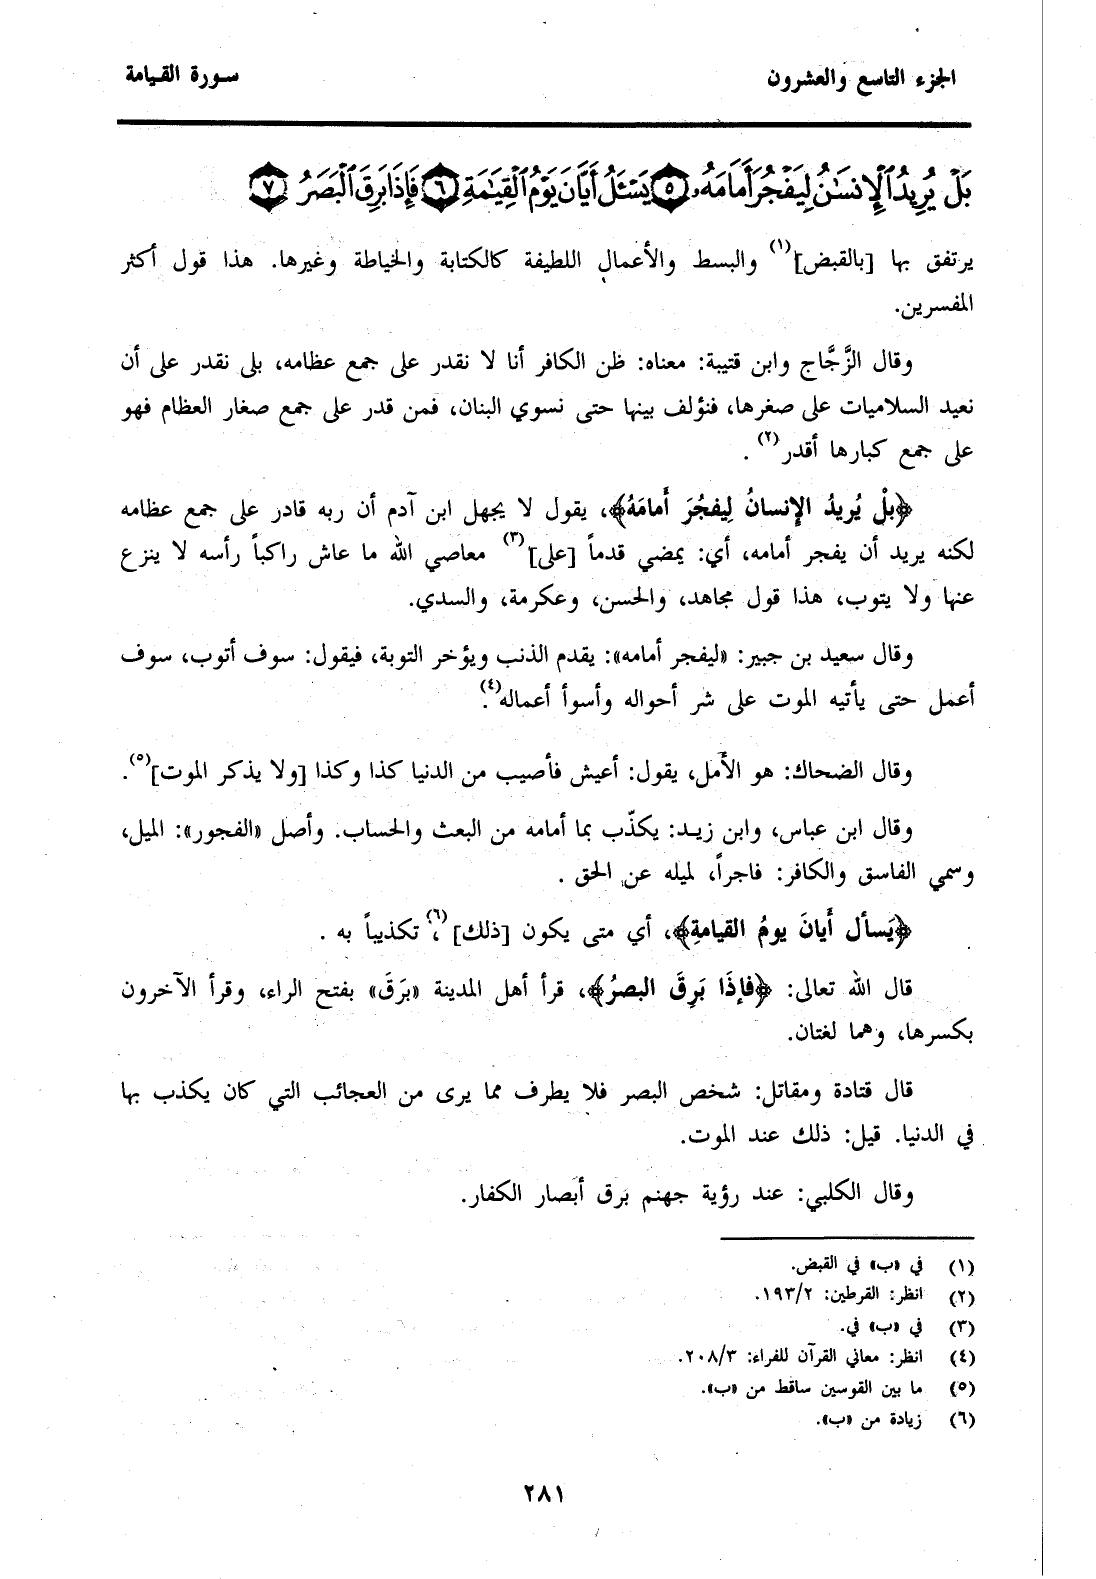 الجزء التاسع والعشرون
سورة القيامة
بَلۡ يُرِيدُ ٱلۡإِنسَٰنُ لِيَفۡجُرَ أَمَامَهُۥ ٥ يَسۡـَٔلُ أَيَّانَ يَوۡمُ ٱلۡقِيَٰمَةِ ٦ فَإِذَا بَرِقَ ٱلۡبَصَرُ ٧
يرتفق بها [بالقبض](١) والبسط والأعمال اللطيفة كالكتابة والخياطة وغيرها. هذا قول أكثر
المفسرين.
وقال الزَّجَّاج وابن قتيبة: معناه: ظن الكافر أنا لا نقدر على جمع عظامه، بلى نقدر على أن
نعيد السلاميات على صغرها، فنؤلف بينها حتى نسوي البنان، فمن قدر على جمع صغار العظام فهو
على جمع كبارها أقدر(٢) .
﴿بلْ يُريدُ الإنسانُ لِيفجُرَ أَمامَهُ﴾، يقول لا يجهل ابن آدم أن ربه قادر على جمع عظامه
لكنه يريد أن يفجر أمامه، أي: يمضي قدماً [على](٣) معاصي الله ما عاش راكباً رأسه لا ينزع
عنها ولا يتوب، هذا قول مجاهد، والحسن، وعكرمة، والسدي.
وقال سعيد بن جبير: «ليفجر أمامه»: يقدم الذنب ويؤخر التوبة، فيقول: سوف أتوب، سوف
أعمل حتى يأتيه الموت على شر أحواله وأسوأ أعماله(٤).
وقال الضحاك: هو الأمل، يقول: أعيش فأصيب من الدنيا كذا وكذا [ولا يذكر الموت](٥).
وقال ابن عباس، وابن زيد: يكذّب بما أمامه من البعث والحساب. وأصل «الفجور»: الميل،
وسمي الفاسق والكافر: فاجراً، لميله عن الحق .
﴿يَسأل أَيانَ يومُ القيامةِ﴾، أي متى يكون [ذلك](٦)، تكذيباً به .
قال الله تعالى: ﴿فإذَا بَرِقَ البصرُ﴾، قرأ أهل المدينة «برَقَ» بفتح الراء، وقرأ الآخرون
بكسرها، وهما لغتان.
قال قتادة ومقاتل: شخص البصر فلا يطرف مما يرى من العجائب التي كان يكذب بها
في الدنيا. قيل: ذلك عند الموت.
وقال الكلبي: عند رؤية جهنم برق أبصار الكفار.
(١) في «ب» في القبض.
(٢) انظر: القرطين: ١٩٣/٢.
(٣) في «ب» في.
(٤) انظر: معاني القرآن للفراء: ٢٠٨/٣.
(٥) ما بين القوسين ساقط من «ب».
(٦) زيادة من «ب».
٢٨١